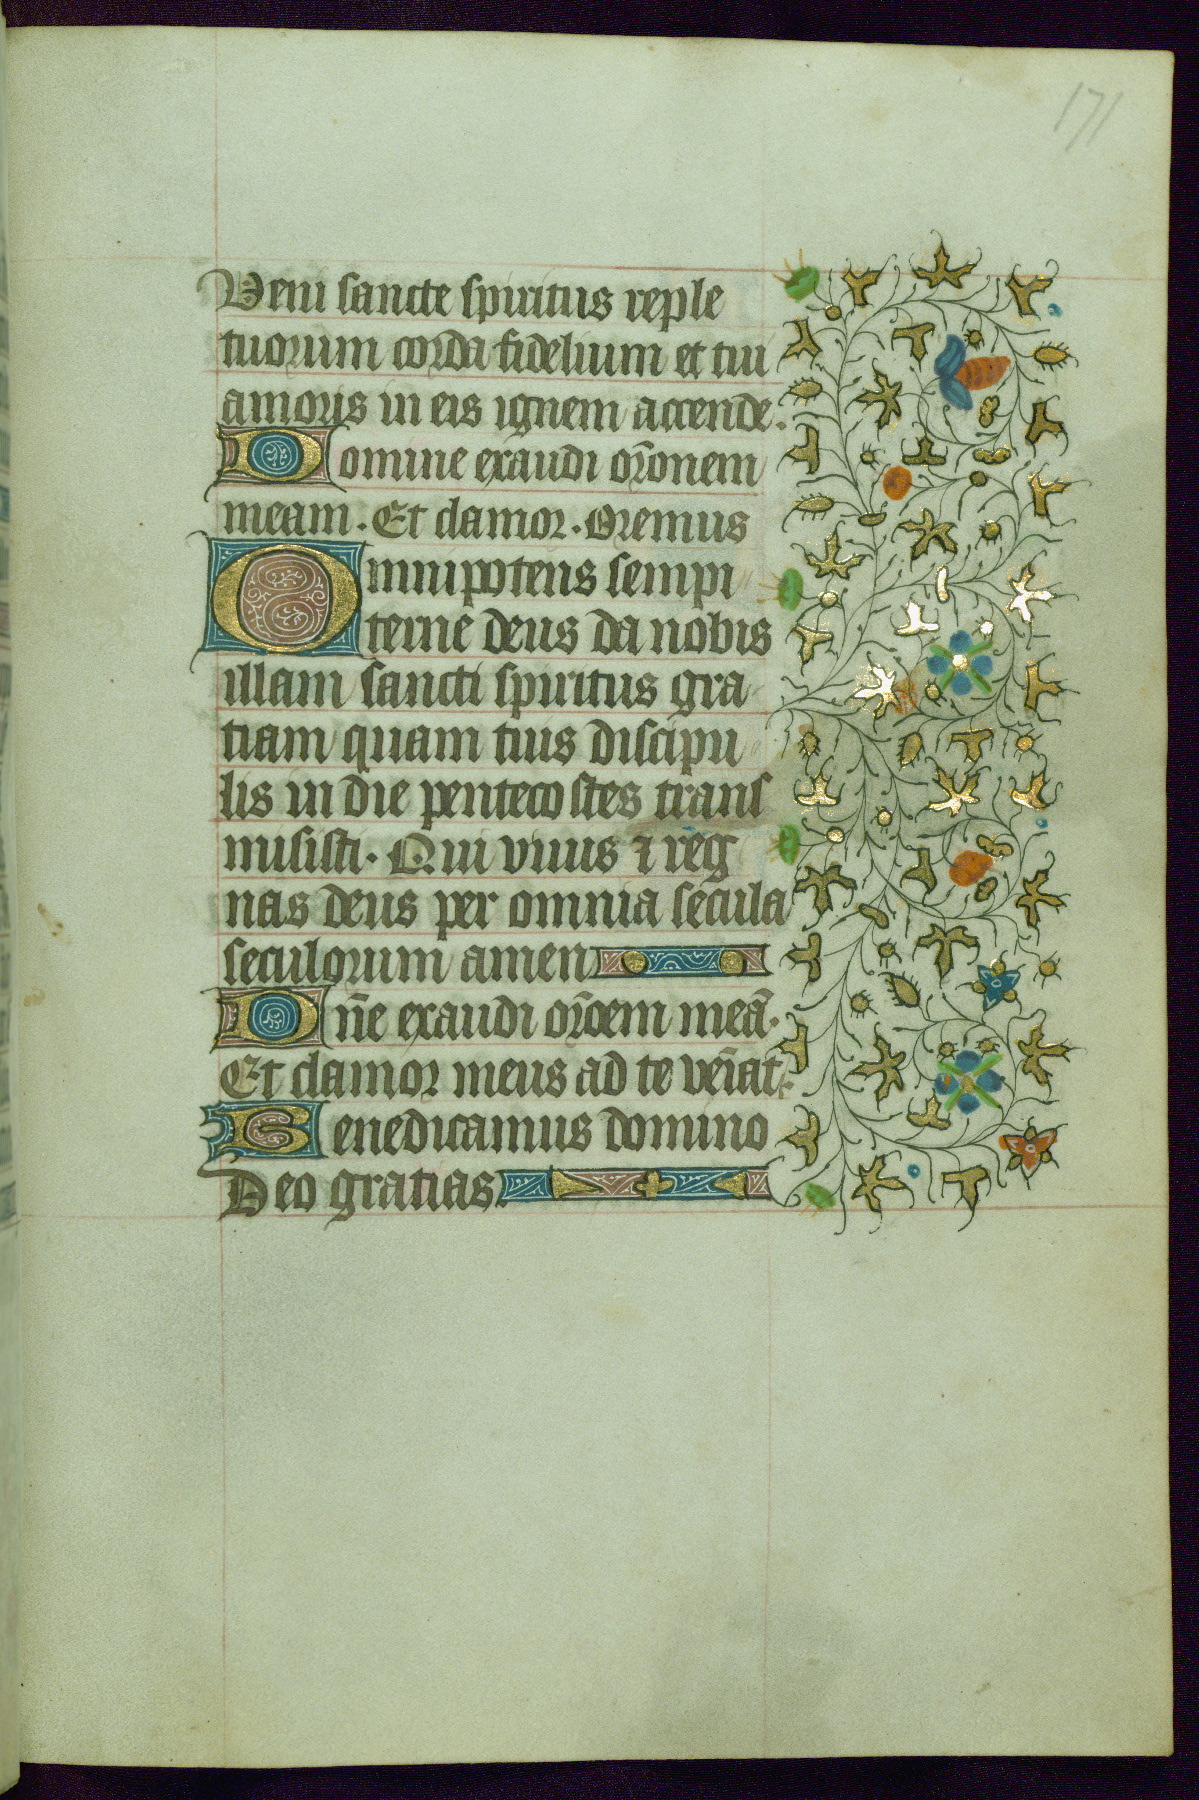 171
Veni sancte spiritus reple
tuorum corda fidelium et tui
amoris in eis ignem accende.
Domine exaudi or̄onem
meam. Et clamor. Oremus
Omnipotens sempi
terne deus da nobis
illam sancti spiritus gra
tiam quam tuis discipu
lis in die pentecostes trans
misisti. Qui viuis ⁊ reg
nas deus per omnia secula
seculorum amen
Dn̄e exaudi or̄oem meā.
Et clamor meus ad te vēiat.
Benedicamus domino
Deo gratias